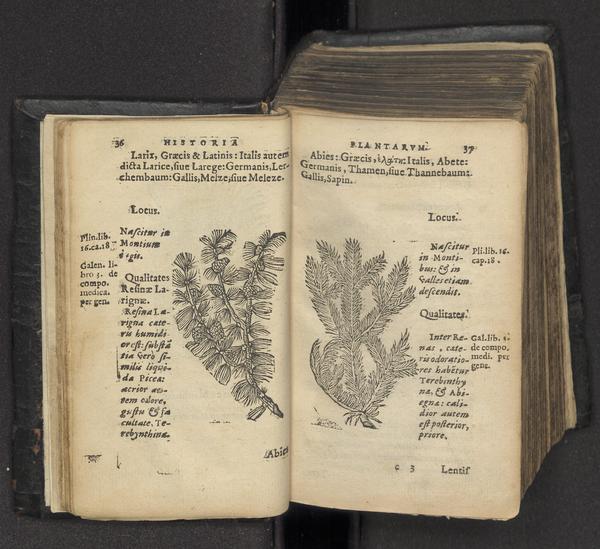 36 HISTORIA
Larix, Græcis & Latinis: Italis autem
dicta Larice, siue Larege: Germanis, Ler-
chembaum: Gallis, Melze, siue Meleze.
Locus.
Plin. lib.
16. ca. 18
Nascitur in
Montium
iugis.
Galen. li-
bro 3. de
compo.
medica.
per gen.
Qualitates
Resinæ La-
rignæ.
Resina La-
rigna cate-
ris humidi
or est: substã
tia verò si-
milis liqui-
da Piceæ:
acrior au-
tem odore,
gustu & fa
cultate, Te-
rebynthina.
Abies
PLANTARVM. 37
Abies: Græcis, ἐλάτη: Italis, Abete:
Germanis, Thamen, siue Thannebaum:
Gallis, Sapin.
Locus.
Nascitur
in Monti-
bus: & in
Valles etiam
descendit.
Pli. lib. 16.
cap. 18.
Qualitates.
Inter Re-
nas, cate-
ris odoratio-
res habētur
Terebinthi
na, & Abi-
egna: cali-
dior autem
est posterior,
priore.
Gal. lib.
de compo,
medi. per
gene.
c 3 Lentis